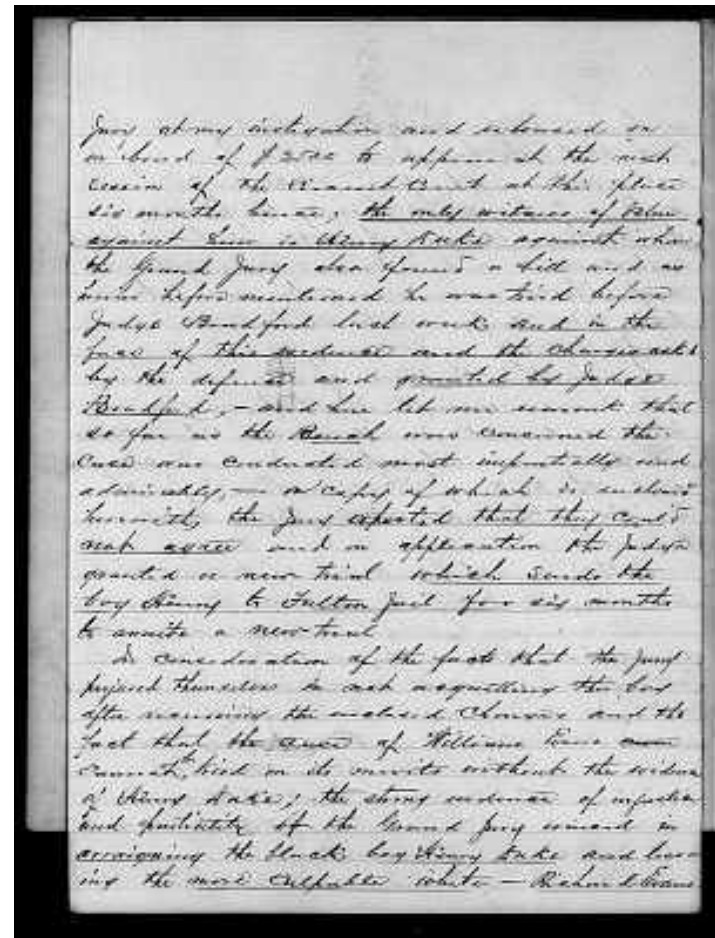 Jury at my instigation and released on
a bond of $2500 to appear at the next
session of the Circuit Court at this place
six months hence; the only witness of
against him is Henry Duke against whom
the Grand Jury also found a bill and as
before mentioned he was tried before
Judge Bradford last week and in the
face of this evidence and the charges asked
by the defense and granted by Judge
Bradford, - and here let me remark that
so far as the Bench was concerned the
case was conducted most impartially and
admirably, - a copy of which is enclosed
herewith, the jury reported that they could
not agree and on application the Judge
granted a new trial which sends the
boy Henry to Fulton Jail for six months
to awaite a new trial
In consideration of the facts that the jury
perjured themselves in not acquitting the boy
after receiving the enclosed Charges and the
fact that the case of William
cannot tried on its merits without the evidence
of Henry Duke; the strong evidence of injustice
and partiality of the Grand Jury in
arraigning the black boy Henry Duke and leav-
ing the more culpable white - Richard Evans